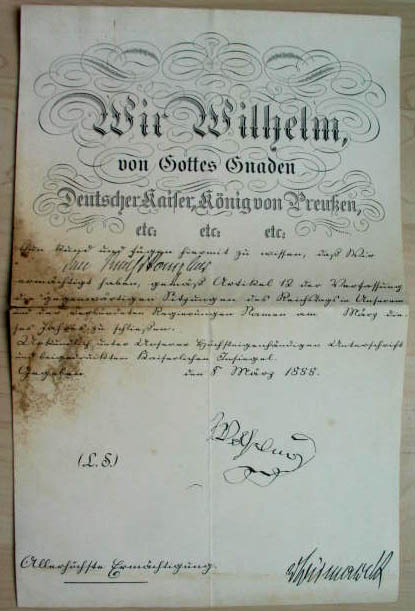 Wir Wilhelm,
von Gottes Gnaden
Deutscher Kaiser, König von Preußen,
etc: etc: etc:
Thun kund und fügen hiermit zu wissen, daß Wir
den Reichskanzler
ermächtigt haben, gemäß Artikel 12 der Verfassung
die gegenwärtigen Sitzungen des Reichstags in Unserem
und der verbündeten Regierungen Namen am März die
ses Jahres zu schließen.
Urkundlich unter Unserer Höchsteigenhändigen Unterschrift
und beigedrucktem Kaiserlichen Insiegel.
Gegeben den 8 März 1888.
Wilhelm
(L. S.)
Allerhöchste Ermächtigung.
v Bismarck